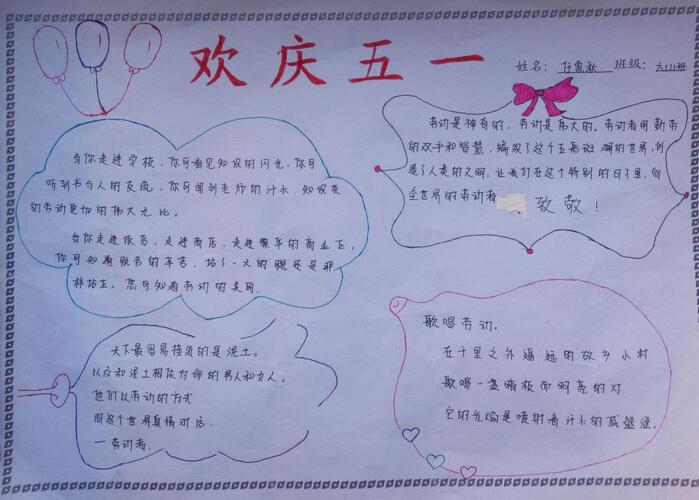 欢庆五一
姓名：任惠秋 班级：六(2)班
当你走进学校，你可看见知识的闪光，你可
听到书与人的交流，你可闻到老师的汗水，知识类
的劳动更加的伟大无比。
当你走进饭店，走进商店，走进繁华的商业区，
你可知道服务的辛苦，站了一天的腿还是那
样站立，您可知道劳动的美丽。
劳动是神奇的，劳动是伟大的。劳动者用勤劳
的双手和智慧，编织了这个五彩斑斓的世界，创
造了人类的文明。让我们在这个特别的日子里，向
全世界的劳动者 致敬！
天下最容易接近的是泥土。
以及和泥土相依为命的男人和女人。
他们以劳动的方式
同这个世界真情对话
一劳动者.
歌唱劳动。
在千里之外遥远的故乡小村
歌唱一盏嘀板而明亮的灯
它的光焰是喷射着汗水的咸涩